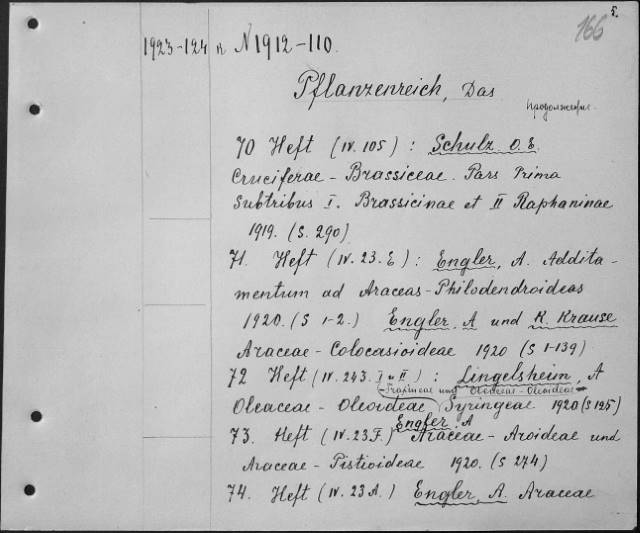 5.
166
1923-124 и N1912-110.
Pflanzenreich, Das
продолжение.
70 Heft (IV. 105) : Schulz. O. E.
Cruciferae - Brassiceae. Pars Prima
Subtribus I. Brassicinae et II Raphaninae
1919. (S. 290)
71. Heft (IV. 23. E) : Engler, A. Addita-
mentum ad Araceas-Philodendroideas
1920. (S 1-2.) Engler. A und K. Krause
Araceae - Colocasioideae 1920 (S 1-139)
72 Heft (IV. 243. I u II) : Lingelsheim, A
Fraxineae und Oleaceae-Oleoideae
Oleaceae - Oleoideae Syringeae 1920 (S 125)
Engler. A
73. Heft (IV. 23F.) Araceae - Aroideae und
Araceae - Pistioideae 1920. (S 274)
74. Heft (IV. 23A.) Engler, A. Araceae